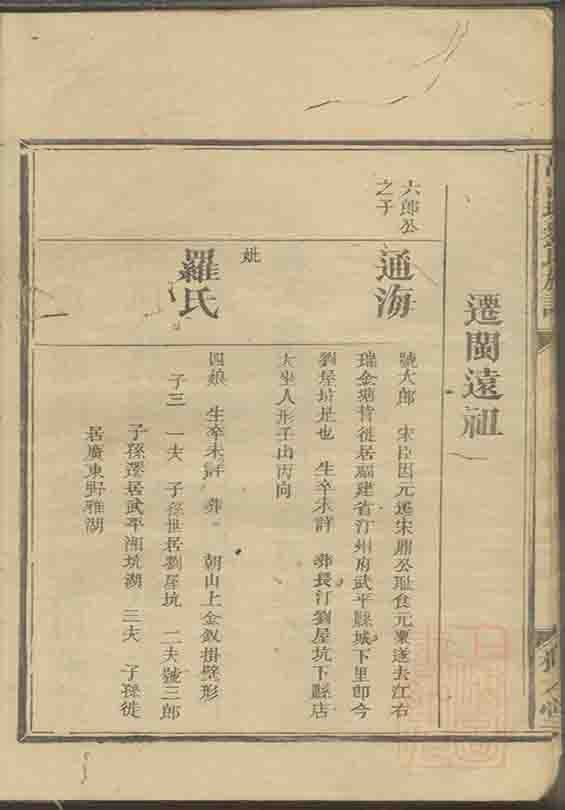 遷閩遠祖
六郎公
之子
通海
號大郎　宋臣因元遷宋鼎公恥食元粟遂去江右
瑞金塘背徙居福建省汀州府武平縣城下里即今
劉屋坑是也　生卒未詳　葬長汀劉屋坑下縣店
大坐人形壬山丙向
妣
羅氏
四娘　生卒未詳　葬　朝山上金釵掛壁形
子三　一夫　子孫世居劉屋坑　二夫號三郎
子孫遷居武平湘坑湖　三夫　子孫徙
居廣東野雅湖